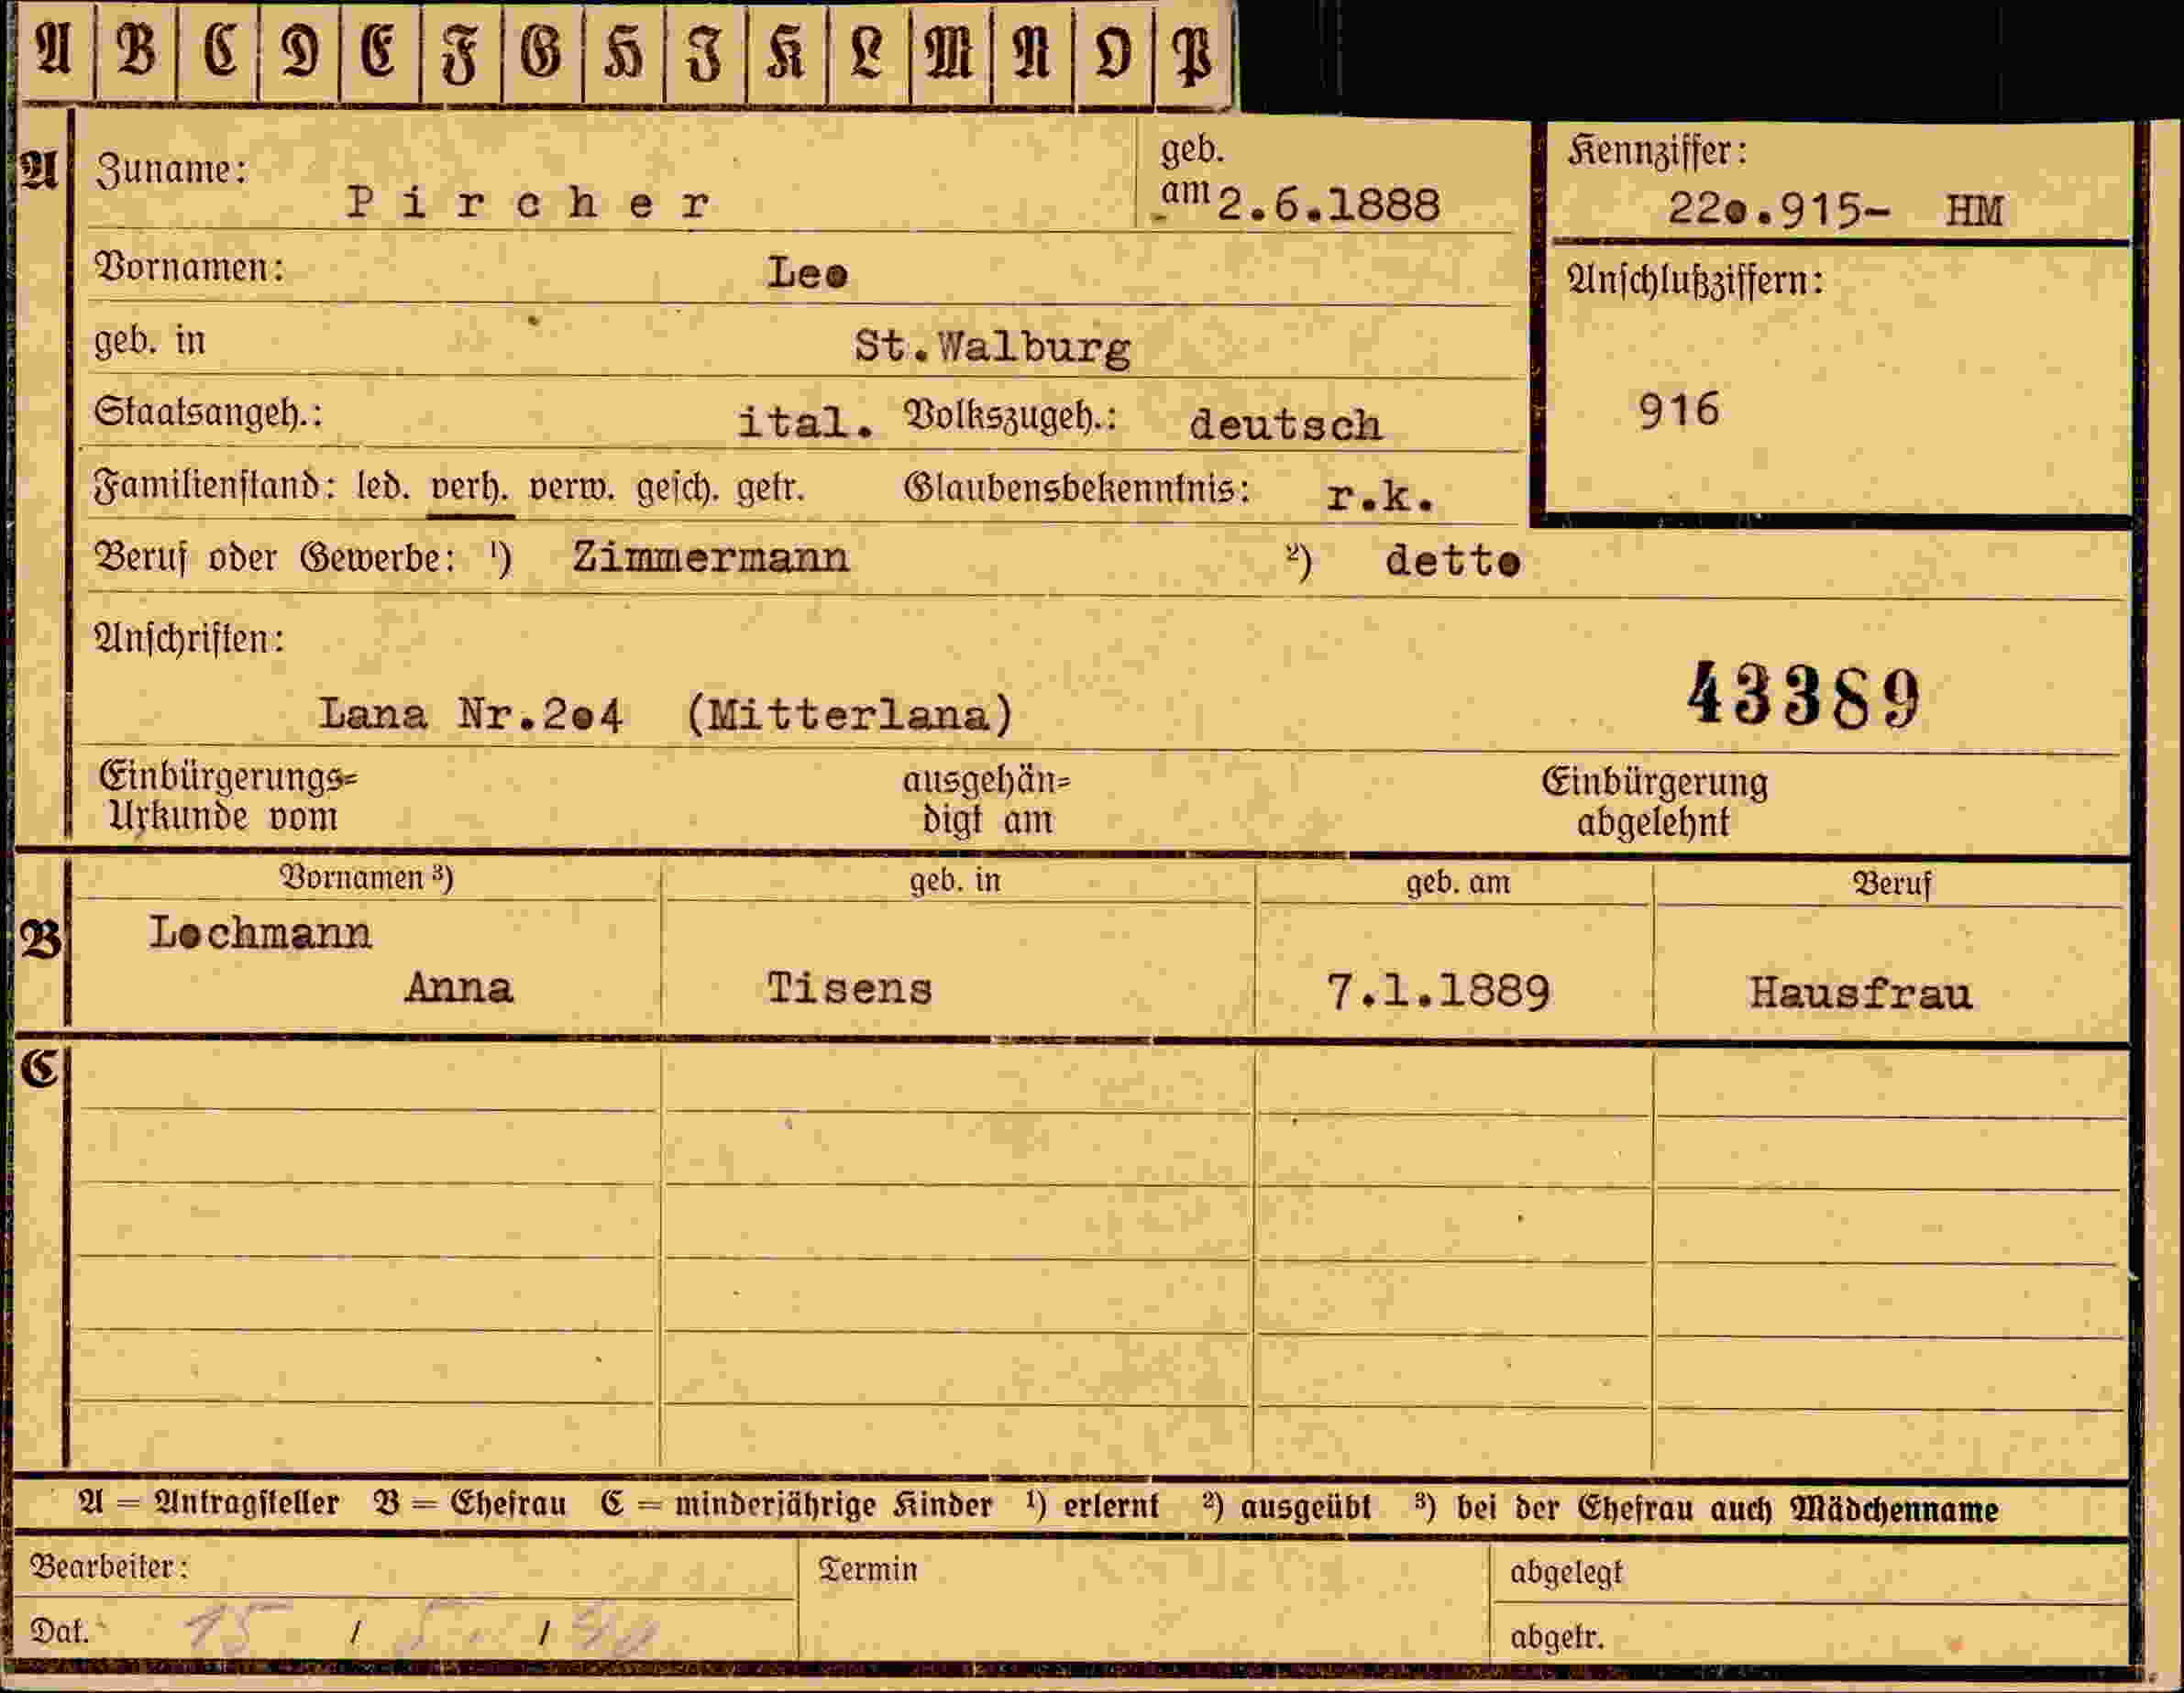 A B C D E F G H J K L M N O P
A Zuname: Pircher geb. am 2.6.1888 Kennziffer: 220.915- HM
Vornamen: Leo Anschlußziffern:
geb. in St.Walburg
Staatsangeh.: ital. Volkszugeh.: deutsch 916
Familienstand: led. verh. verw. gesch. getr. Glaubensbekenntnis: r.k.
Beruf oder Gewerbe: ¹) Zimmermann ²) detto
Anschriften:
Lana Nr.204 (Mitterlana) 43389
Einbürgerungs= ausgehän= Einbürgerung
Urkunde vom digt am abgelehnt
Vornamen ³) geb. in geb. am Beruf
B Lochmann
Anna Tisens 7.1.1889 Hausfrau
C
A = Antragsteller B = Ehefrau C = minderjährige Kinder ¹) erlernt ²) ausgeübt ³) bei der Ehefrau auch Mädchenname
Bearbeiter: Termin abgelegt
Dat. 15 / 5. / 40 abgetr.